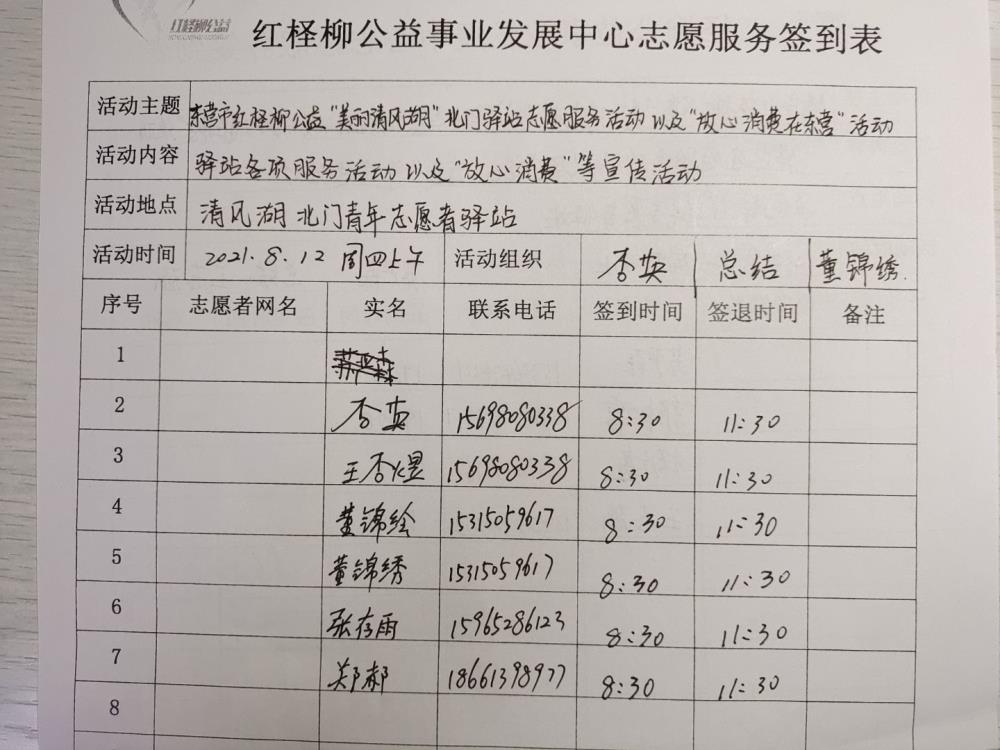 红柽柳公益
红柽柳公益事业发展中心志愿服务签到表
活动主题 东营市红柽柳公益"美丽清风湖"北门驿站志愿服务活动以及"放心消费在东营"活动
活动内容 驿站各项服务活动以及"放心消费"等宣传活动
活动地点 清风湖北门青年志愿者驿站
活动时间 2021.8.12 周四上午 活动组织 杏英 总结 董锦绣.
序号 志愿者网名 实名 联系电话 签到时间 签退时间 备注
1
2 杏英 15698080338 8:30 11:30
3 王杏煜 15698080338 8:30 11:30
4 董锦绘 15315059617 8:30 11:30
5 董锦绣 15315059617 8:30 11:30
6 张存雨 15965286123 8:30 11:30
7 郑郝 18661398977 8:30 11:30
8